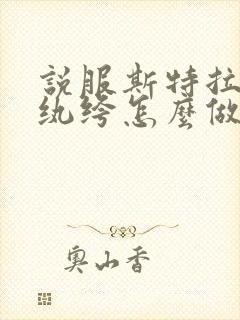 說服斯特拉
纨绔怎麼做
奧山香